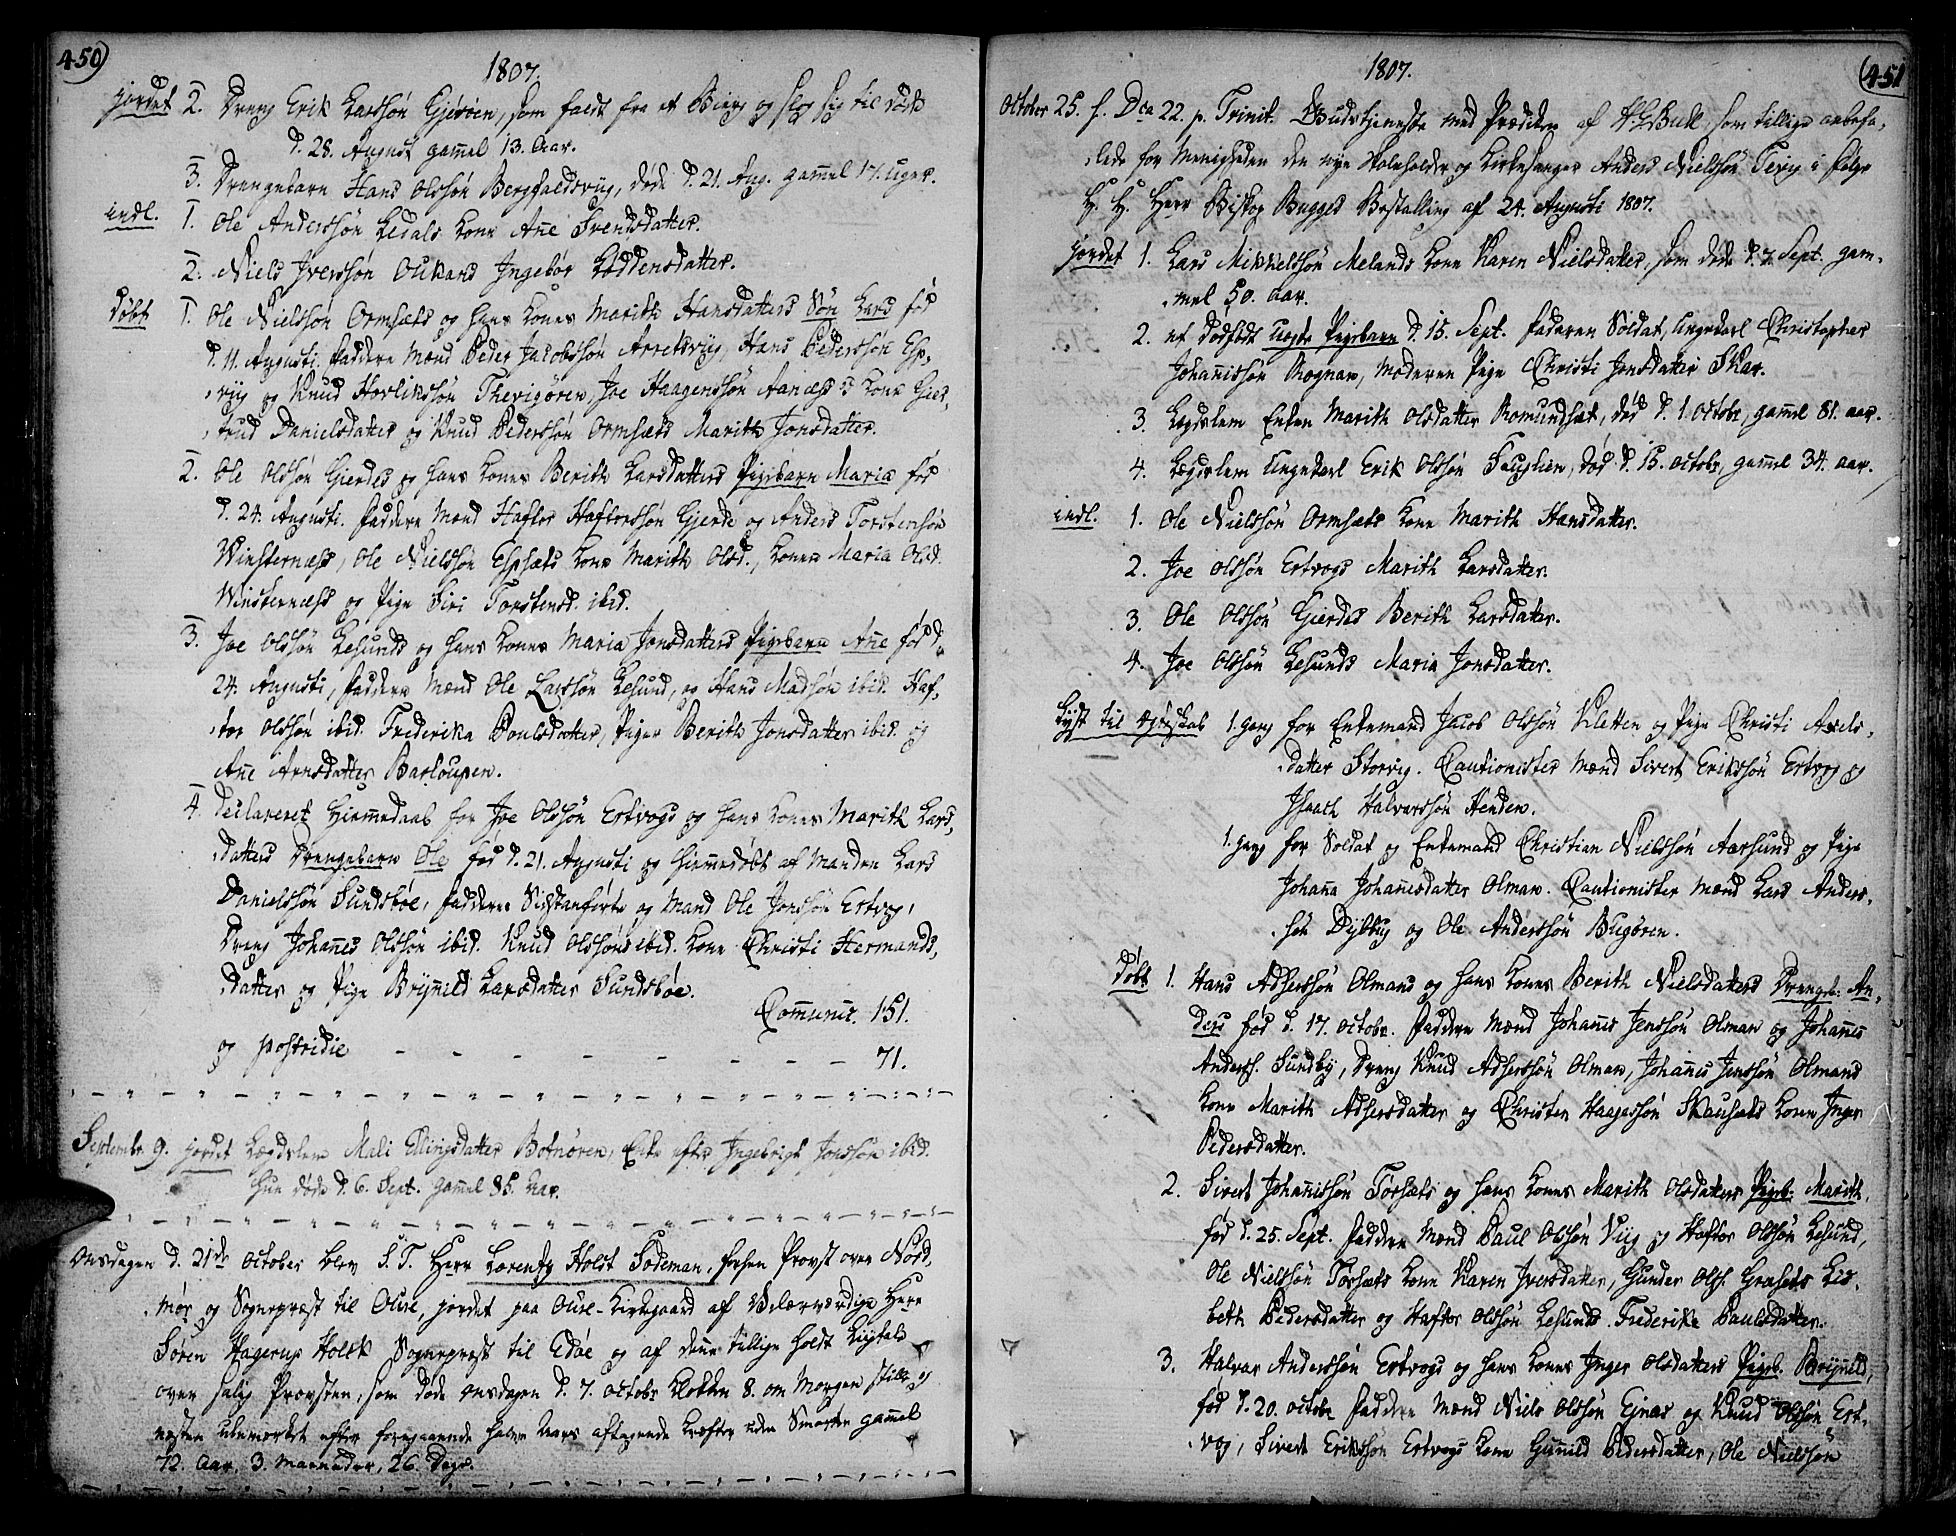 450
1807.
jordet 2. Dreng Erik Larssøn Gjøsøen, som faldt fra et Bierg og slog sig til døde
d. 28. August gam̄el 13. Aar.
3. Drengebarn Hans Olssøn Bergfaldsviig, døde d. 21. Aug. gam̄el 17. Uger.
indl. 1. Ole Anderssøn Ledals Kone An̄e Svendsdatter.
2. Niels Iverssøn Oukans Ingebor Loddensdatter.
Døbt 1. Ole Nielssøn Ormsæts og hans Kones Marith Hansdatters Søn Lars fød
d. 11. Augusti. Faddere Mænd Peder Jacobssøn Arretsviig, Hans Pederssøn Esp-
viig og Knud Torlikssøn Thevigøren, Joe Haagenssøn Aanæss's Kone Gier-
trud Danielsdatter og Knud Pederssøn Ormsæts Marith Jonsdatter.
2. Ole Olssøn Gierdes og hans Kones Berith Larsdatters Pigebarn Maria fød
d. 24. Augusti. Faddere Mænd Haftor Haftorssøn Gjerde og Anders Torstenssøn
Winsternæss, Ole Nielssøn Espsæts Kone Marith Olsd., Konen Maria Olsd.
Winsternæss og Pige Siri Torstensd. ibid.
3. Joe Olssøn Lesunds og hans Kones Maria Jonsdatters Pigebarn An̄e fød d.
24. Augusti, Faddere Mænd Ole Larssøn Lesund, og Hans Madsøn ibid. Haf-
tor Olssøn ibid. Frederika Poulsdatter, Piger Berith Jonsdatter ibid. og
An̄e Arnsdatter Barloupen.
4. Declareret Hiemmedaab for Joe Olssøn Ertvogs og hans Kones Marith Lars-
datters Drengebarn Ole fød d. 21. Augusti og hiem̄edøbt af Manden Lars
Danielssøn Sundsbøe, Faddere Sidstanførte og Mand Ole Jonssøn Ertvog,
Dreng Johan̄es Olssøn ibid. Knud Olssøns ibid. Kone Christi Hermands-
datter og Pige Bryn̄ild Larsdatter Sundsbøe.
Com̄unic. 151.
og postridie — — — — — — 71.
Septembr. 9. jordet Lægdslem Mali Ellingsdatter Botnøren, Enke efter Ingebrigt Jonssøn ibid.
hun døde d. 6. Sept. gam̄el 85. Aar.
Onsdagen d. 21de October blev S. T. Herr Lorentz Holst Sødeman, forhen Provst over Nord-
mør og Sognepræst til Oure, jordet paa Oure-Kirkegaard af Velærværdige Herr
Søren Hagerup Holck Sognepræst til Edøe og af denne tillige holdt Liigtale
over salig Provsten, som døde Onsdagen d. 7. Octobr Klokken 8. om Morgen stille og
næsten ubemærket efter foregaaende halve Aars aftagende Kræfter uden Smerter gam̄el
72. Aar, 3. Maaneder, 26. Dage.
451
1807.
October 25. f. Dca 22. p. Trinit. Gudstjeneste med Prædiken af Hr Bull, som tillige anbefa-
lede for Menigheden den nye Skoleholder og Kirkesanger Anders Nielssøn Tevig i følge
H. H. Herr Biskop Bugges Bestalling af 24. Augusti 1807.
jordet 1. Lars Mikkelssøn Melands Kone Karen Nielsdatter, som døde d. 7. Sept. gam-
mel 50. Aar.
2. et Dødfødt uægte Pigebarn d. 15. Sept. Faderen Soldat, Ungekarl Christopher
Johan̄issøn Rognan, Moderen Pige Christi Jonsdatter Skar.
3. Lægdslem Enken Marith Olsdatter Romundset, død d. 1. Octobr, gam̄el 81. Aar.
4. Lægdslem Ungekarl Erik Olssøn Fauglien, død d. 15. Octobr, gam̄el 34. Aar.
indl. 1. Ole Nielssøn Ormsæts Kone Marith Hansdatter.
2. Joe Olssøn Ertvogs Marith Larsdatter.
3. Ole Olssøn Gierdes Berith Larsdatter.
4. Joe Olssøn Lesunds Maria Jonsdatter.
Lyst til Egteskab 1. gang for Enkemand Jacob Olssøn Kletten og Pige Christi Axels-
datter Storvig. Cautionister Mænd Sivert Erikssøn Ertvog og
Isaach Halvorssøn Henden.
1. gang for Soldat og Enkemand Christian Nielssøn Aarsund og Pige
Johan̄a Johan̄esdatter Olman. Cautionister Mænd Lars Anders-
søn Dylbug og Ole Anderssøn Bugøren.
Døbt 1. Hans Adserssøn Olmans og hans Kones Berith Nielsdatters Drengeb. An-
ders fød d. 17. Octobr. Faddere Mænd Johan̄es Jenssøn Olman og Johan̄es
Anderss. Sundby, Dreng Knud Adserssøn Olman, Johan̄es Jenssøn Olmans
Kone Marith Adsersdatter og Christen Haagessøn Skausæts Kone Inger
Pedersdatter.
2. Sivert Johan̄issøn Torsæts og hans Kones Marith Olsdatters Pigeb. Marith,
fød d. 25. Sept. Faddere Mænd Paul Olssøn Viig og Haftor Olssøn Lesund,
Ole Nielssøn Torsæts Kone Karen Iversdatter, Gunder Olss. Grasets Lis-
beth Pedersdatter og Haftor Olssøn Lesunds Frederike Paulsdatter.
3. Halvar Anderssøn Ertvogs og hans Kones Inger Olsdatters Pigeb. Bryn̄ild,
fød d. 20. Octobr Faddere Mænd Niels Olssøn Ejnes og Knud Olssøn Ert-
vog, Sivert Erikssøn Ertvogs Kone Gun̄ild Pedersdatter, Ole Nielssøn